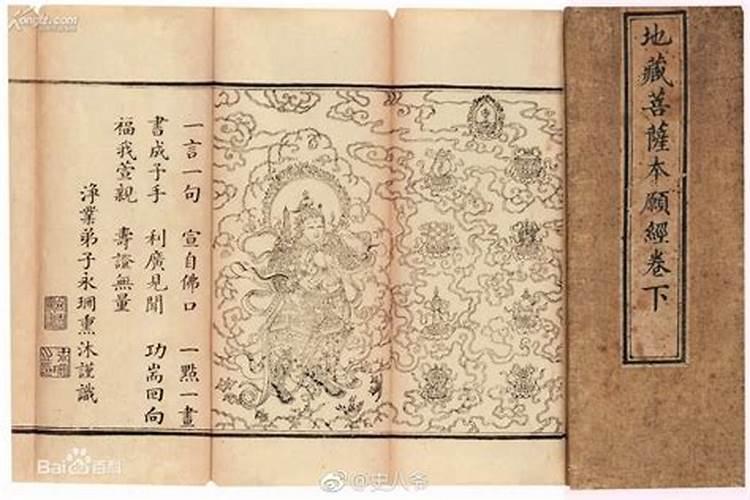 Kongfz.com
地藏菩薩本願經卷下
一言一句 宣自佛口 一點一畫
書成予手 利廣見聞 功嵩回向
福我萱親 壽證無量
淨業弟子永熏沐謹識
Bai百科
@史人爷